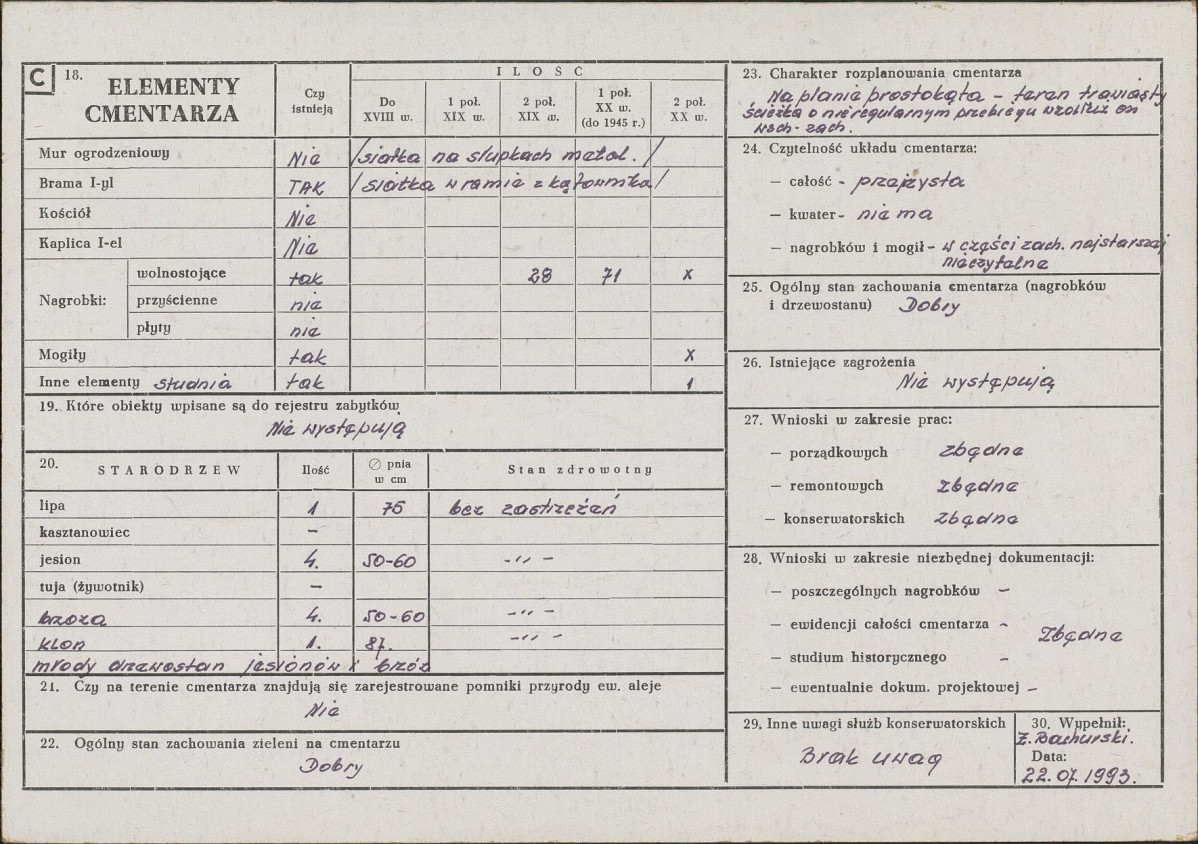 C 18. ELEMENTY CMENTARZA
Czy istnieją
ILOŚĆ
Do XVIII w.
1 poł. XIX w.
2 poł. XIX w.
1 poł. XX w. (do 1945 r.)
2 poł. XX w.
Mur ogrodzeniowy Nie /siatka na słupkach metal./
Brama I-yl TAK /siatka w ramie z kątownika/
Kościół Nie
Kaplica I-el Nie
Nagrobki: wolnostojące tak 28 71 x
przyścienne nie
płyty nie
Mogiły tak x
Inne elementy studnia tak 1
19. Które obiekty wpisane są do rejestru zabytków
Nie występują
20. STARODRZEW Ilość ∅ pnia w cm Stan zdrowotny
lipa 1 75 bez zastrzeżeń
kasztanowiec –
jesion 4. 50-60 -''-
tuja (żywotnik) –
brzoza 4. 50-60 -''-
klon 1. 87. -''-
młody drzewostan jesionów i brzóz
21. Czy na terenie cmentarza znajdują się zarejestrowane pomniki przyrody ew. aleje
Nie
22. Ogólny stan zachowania zieleni na cmentarzu
Dobry
23. Charakter rozplanowania cmentarza
Na planie prostokąta - teren trawiasty
ścieżka o nieregularnym przebiegu wzdłuż osi
wsch-zach.
24. Czytelność układu cmentarza:
— całość - przejrzysta
— kwater - nie ma
— nagrobków i mogił - w części zach. najstarszej
nieczytelne
25. Ogólny stan zachowania cmentarza (nagrobków
i drzewostanu) Dobry
26. Istniejące zagrożenia
Nie występują
27. Wnioski w zakresie prac:
— porządkowych zbędne
— remontowych zbędne
— konserwatorskich zbędne
28. Wnioski w zakresie niezbędnej dokumentacji:
— poszczególnych nagrobków –
— ewidencji całości cmentarza –
zbędne
— studium historycznego –
— ewentualnie dokum. projektowej –
29. Inne uwagi służb konserwatorskich
Brak uwag
30. Wypełnił:
Z. Bachurski.
Data:
22.07.1993.